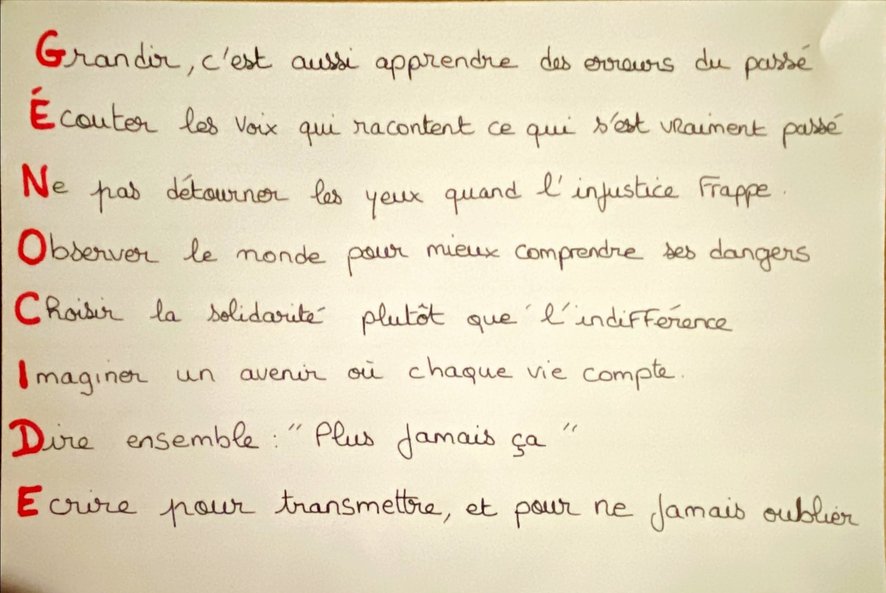 Grandir, c'est aussi apprendre des erreurs du passé
Écouter les voix qui racontent ce qui s'est vraiment passé
Ne pas détourner les yeux quand l'injustice Frappe.
Observer le monde pour mieux comprendre ses dangers
Choisir la solidarité plutôt que l'indiFFérence
Imaginer un avenir où chaque vie compte.
Dire ensemble : "Plus Jamais ça"
Ecrire pour transmettre, et pour ne Jamais oublier